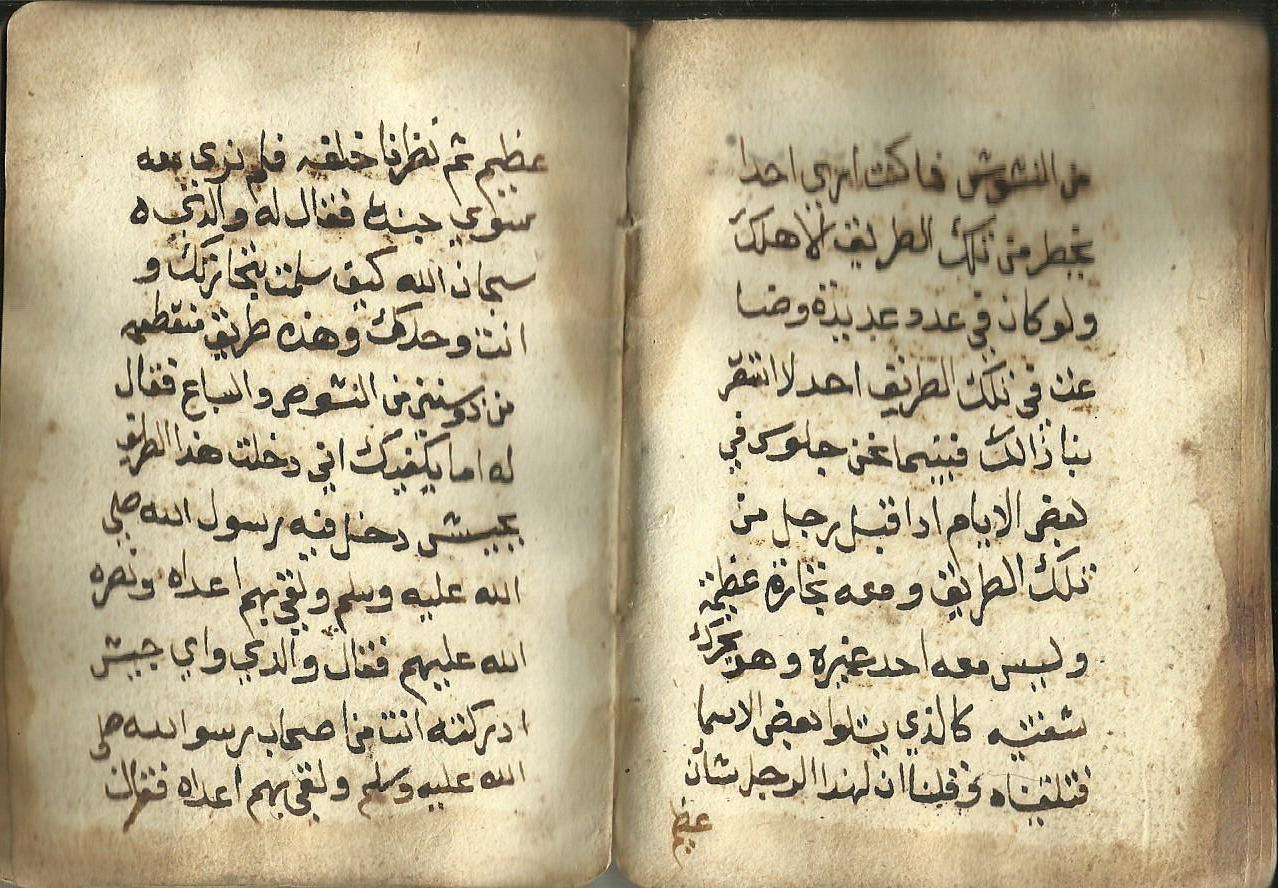 من التشوش فما كنت اري احدا
يخطر من تلك الطريق الا هلك
ولو كان في عدد عديدة وضا
عت في تلك الطريق احد لا انتقر
بنا ذالك فبينما نحن جلوس في
بعض الايام اذا قبل رجل من
تلك الطريق ومعه تجارة عظيمة
وليس معه احد غيره وهو يحرك
شفتيه كالذي يتلوا بعض الاسما
فتلقيناه وقلنا ان لهذا الرجل شأن
عظيم
عظيم ثم نظرنا خلفه فلم نري معه
سوي فقال له والدي ه
سبحان الله كيف سلمت بتجارتك و
انت وحدك وهذه طريق منقطعه
من سنين من اللصوص والسباع فقال
له اما يكفيك اني دخلت هذا الطريق
بجيش دخل فيه رسول الله صلي
الله عليه وسلم ولقي بهم اعداه ونصره
الله عليهم فقال والدي واي جيش
ادركته انت من اصحاب رسوا لله صلي
الله عليه وسلم ولقي بهم اعداه فقال